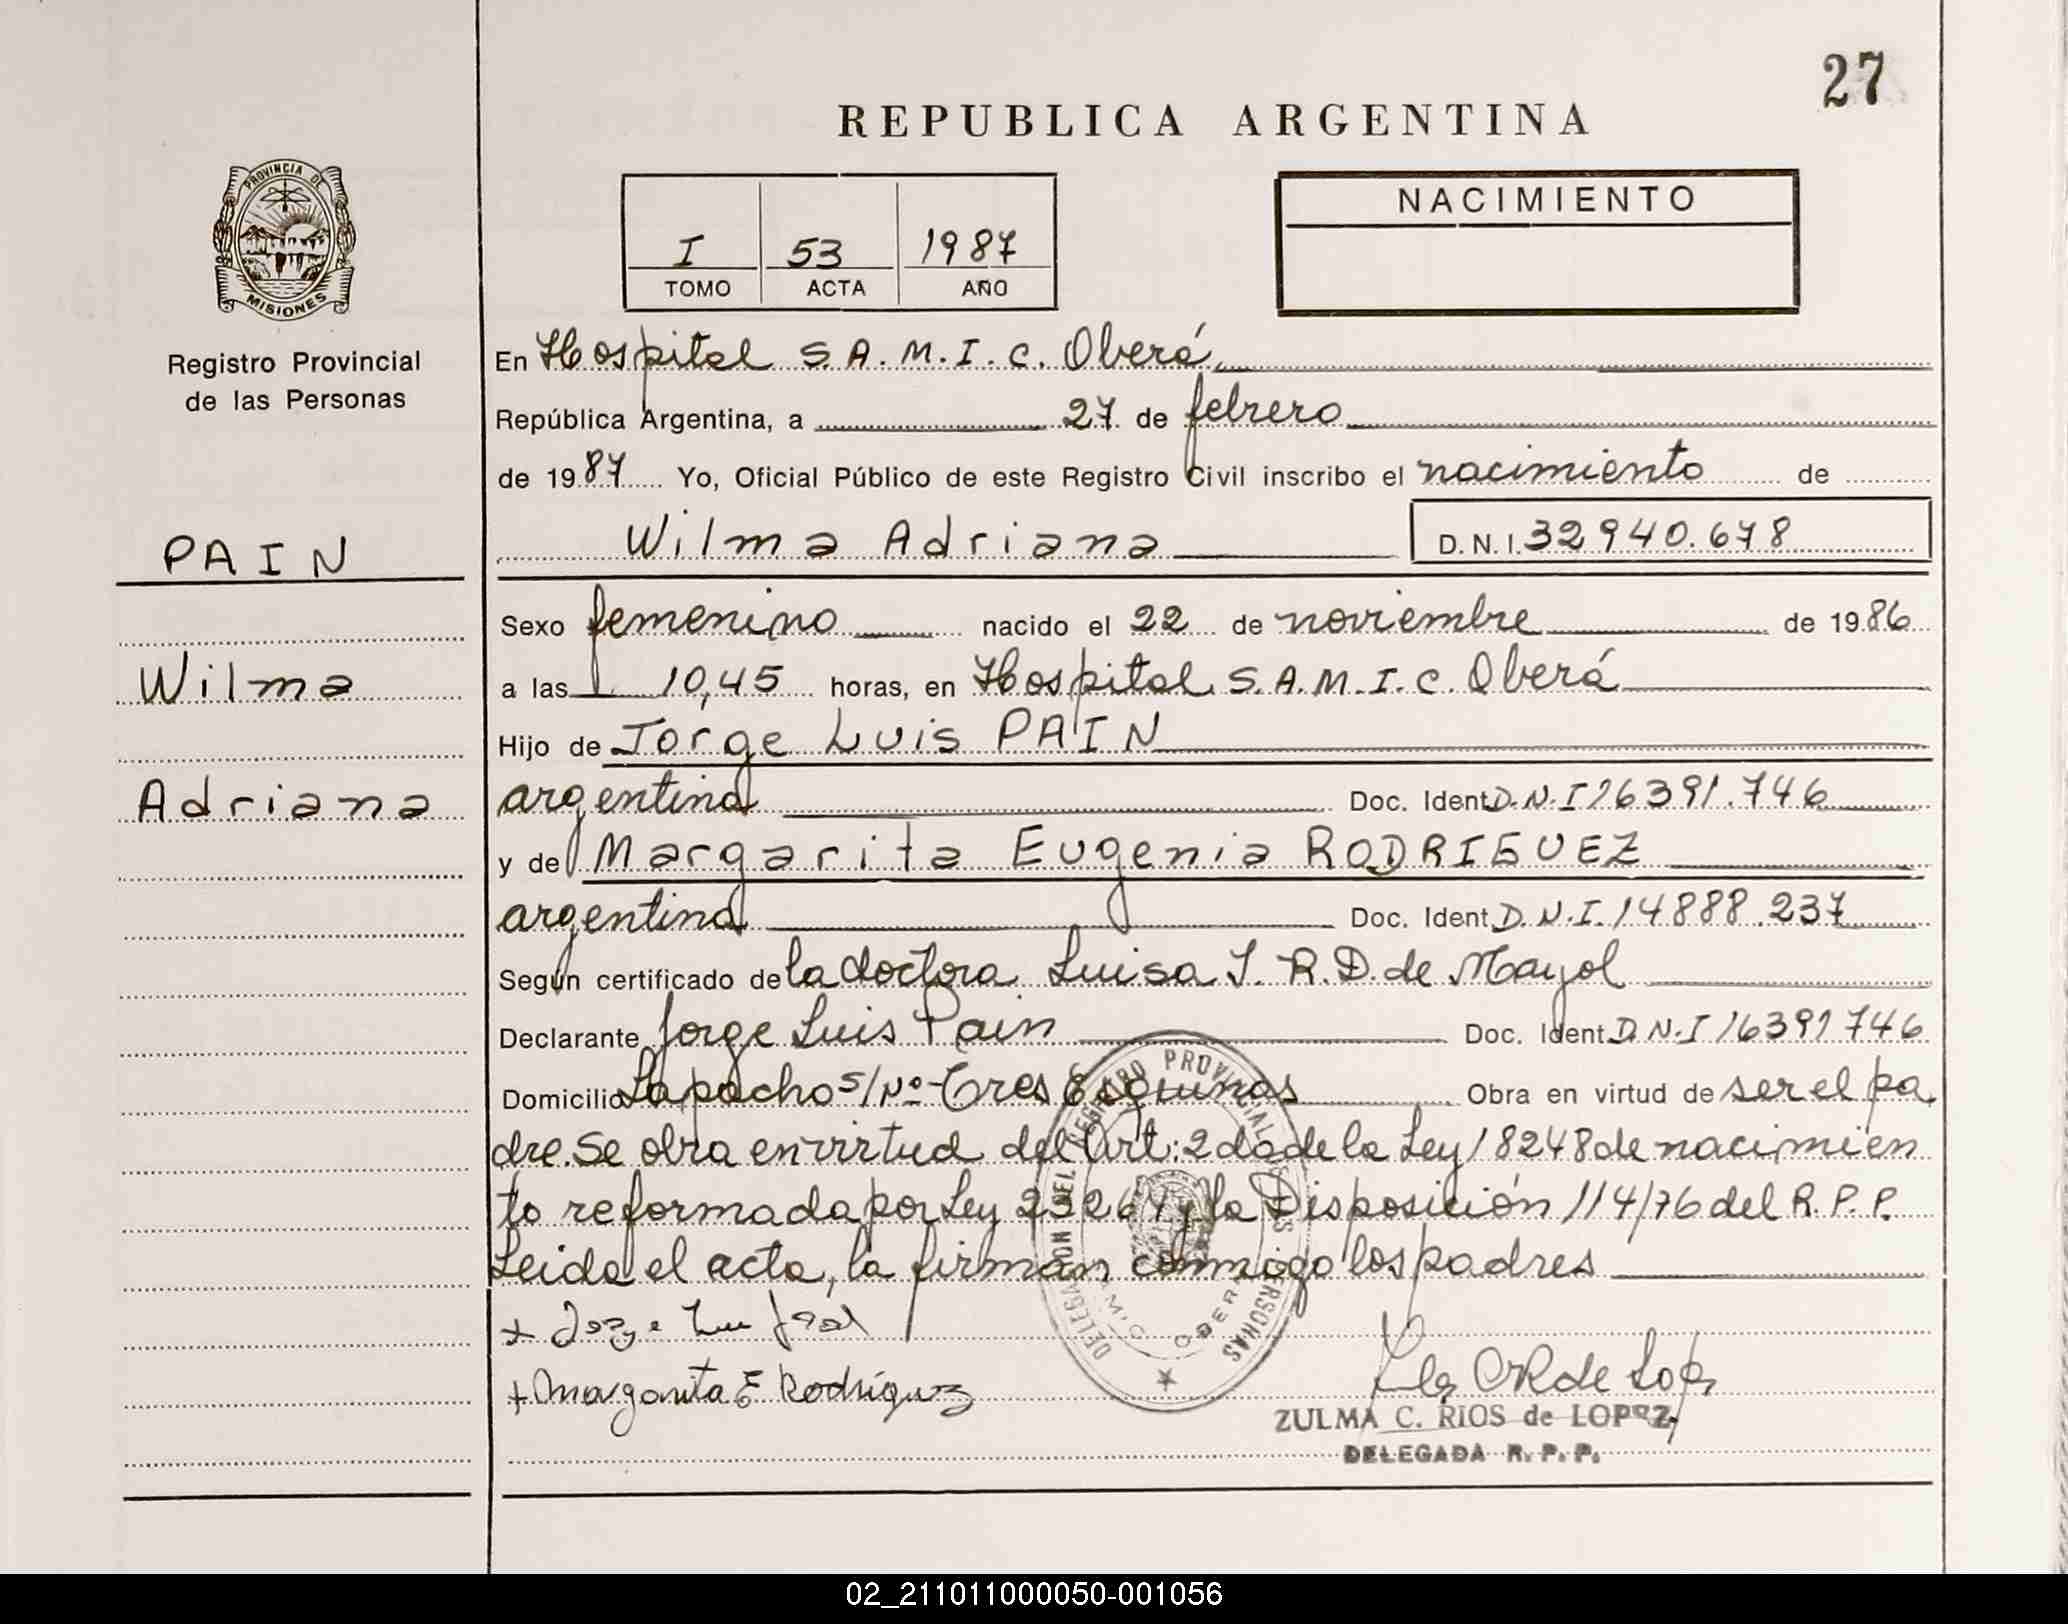 27
REPUBLICA ARGENTINA
PROVINCIA DE
MISIONES
Registro Provincial
de las Personas
I 53 1987
TOMO ACTA AÑO
NACIMIENTO
En Hospital S.A.M.I.C. Oberá
República Argentina, a 27 de febrero
de 1987 Yo, Oficial Público de este Registro Civil inscribo el nacimiento de
Wilma Adriana D.N.I. 32940.678
PAIN
Wilma
Adriana
Sexo femenino nacido el 22 de noviembre de 1986
a las 10,45 horas, en Hospital S.A.M.I.C. Oberá
Hijo de Jorge Luis PAIN
argentina Doc. Ident. D.N.I 16391.746
y de Margarita Eugenia RODRIGUEZ
argentina Doc. Ident. D.N.I. 14888.237
Según certificado de la doctora Luisa I. R.D. de Mayol
Declarante Jorge Luis Pain Doc. Ident. D.N.I 16391746
Domicilio Lapacho s/Nº-Tres Esquinas Obra en virtud de ser el pa
dre. Se obra en virtud del Art: 2do de la Ley 18248 de nacimien
to reformada por Ley 23264 y la Disposición 114/76 del R.P.P.
Leida el acta, la firman conmigo los padres
+ Jorge Luis
+ Margarita E Rodriguez
DELEGACION DEL REGISTRO PROVINCIAL DE LAS PERSONAS
OBERA
ZULMA C. RIOS de LOPEZ
DELEGADA R. P. P.
02_211011000050-001056